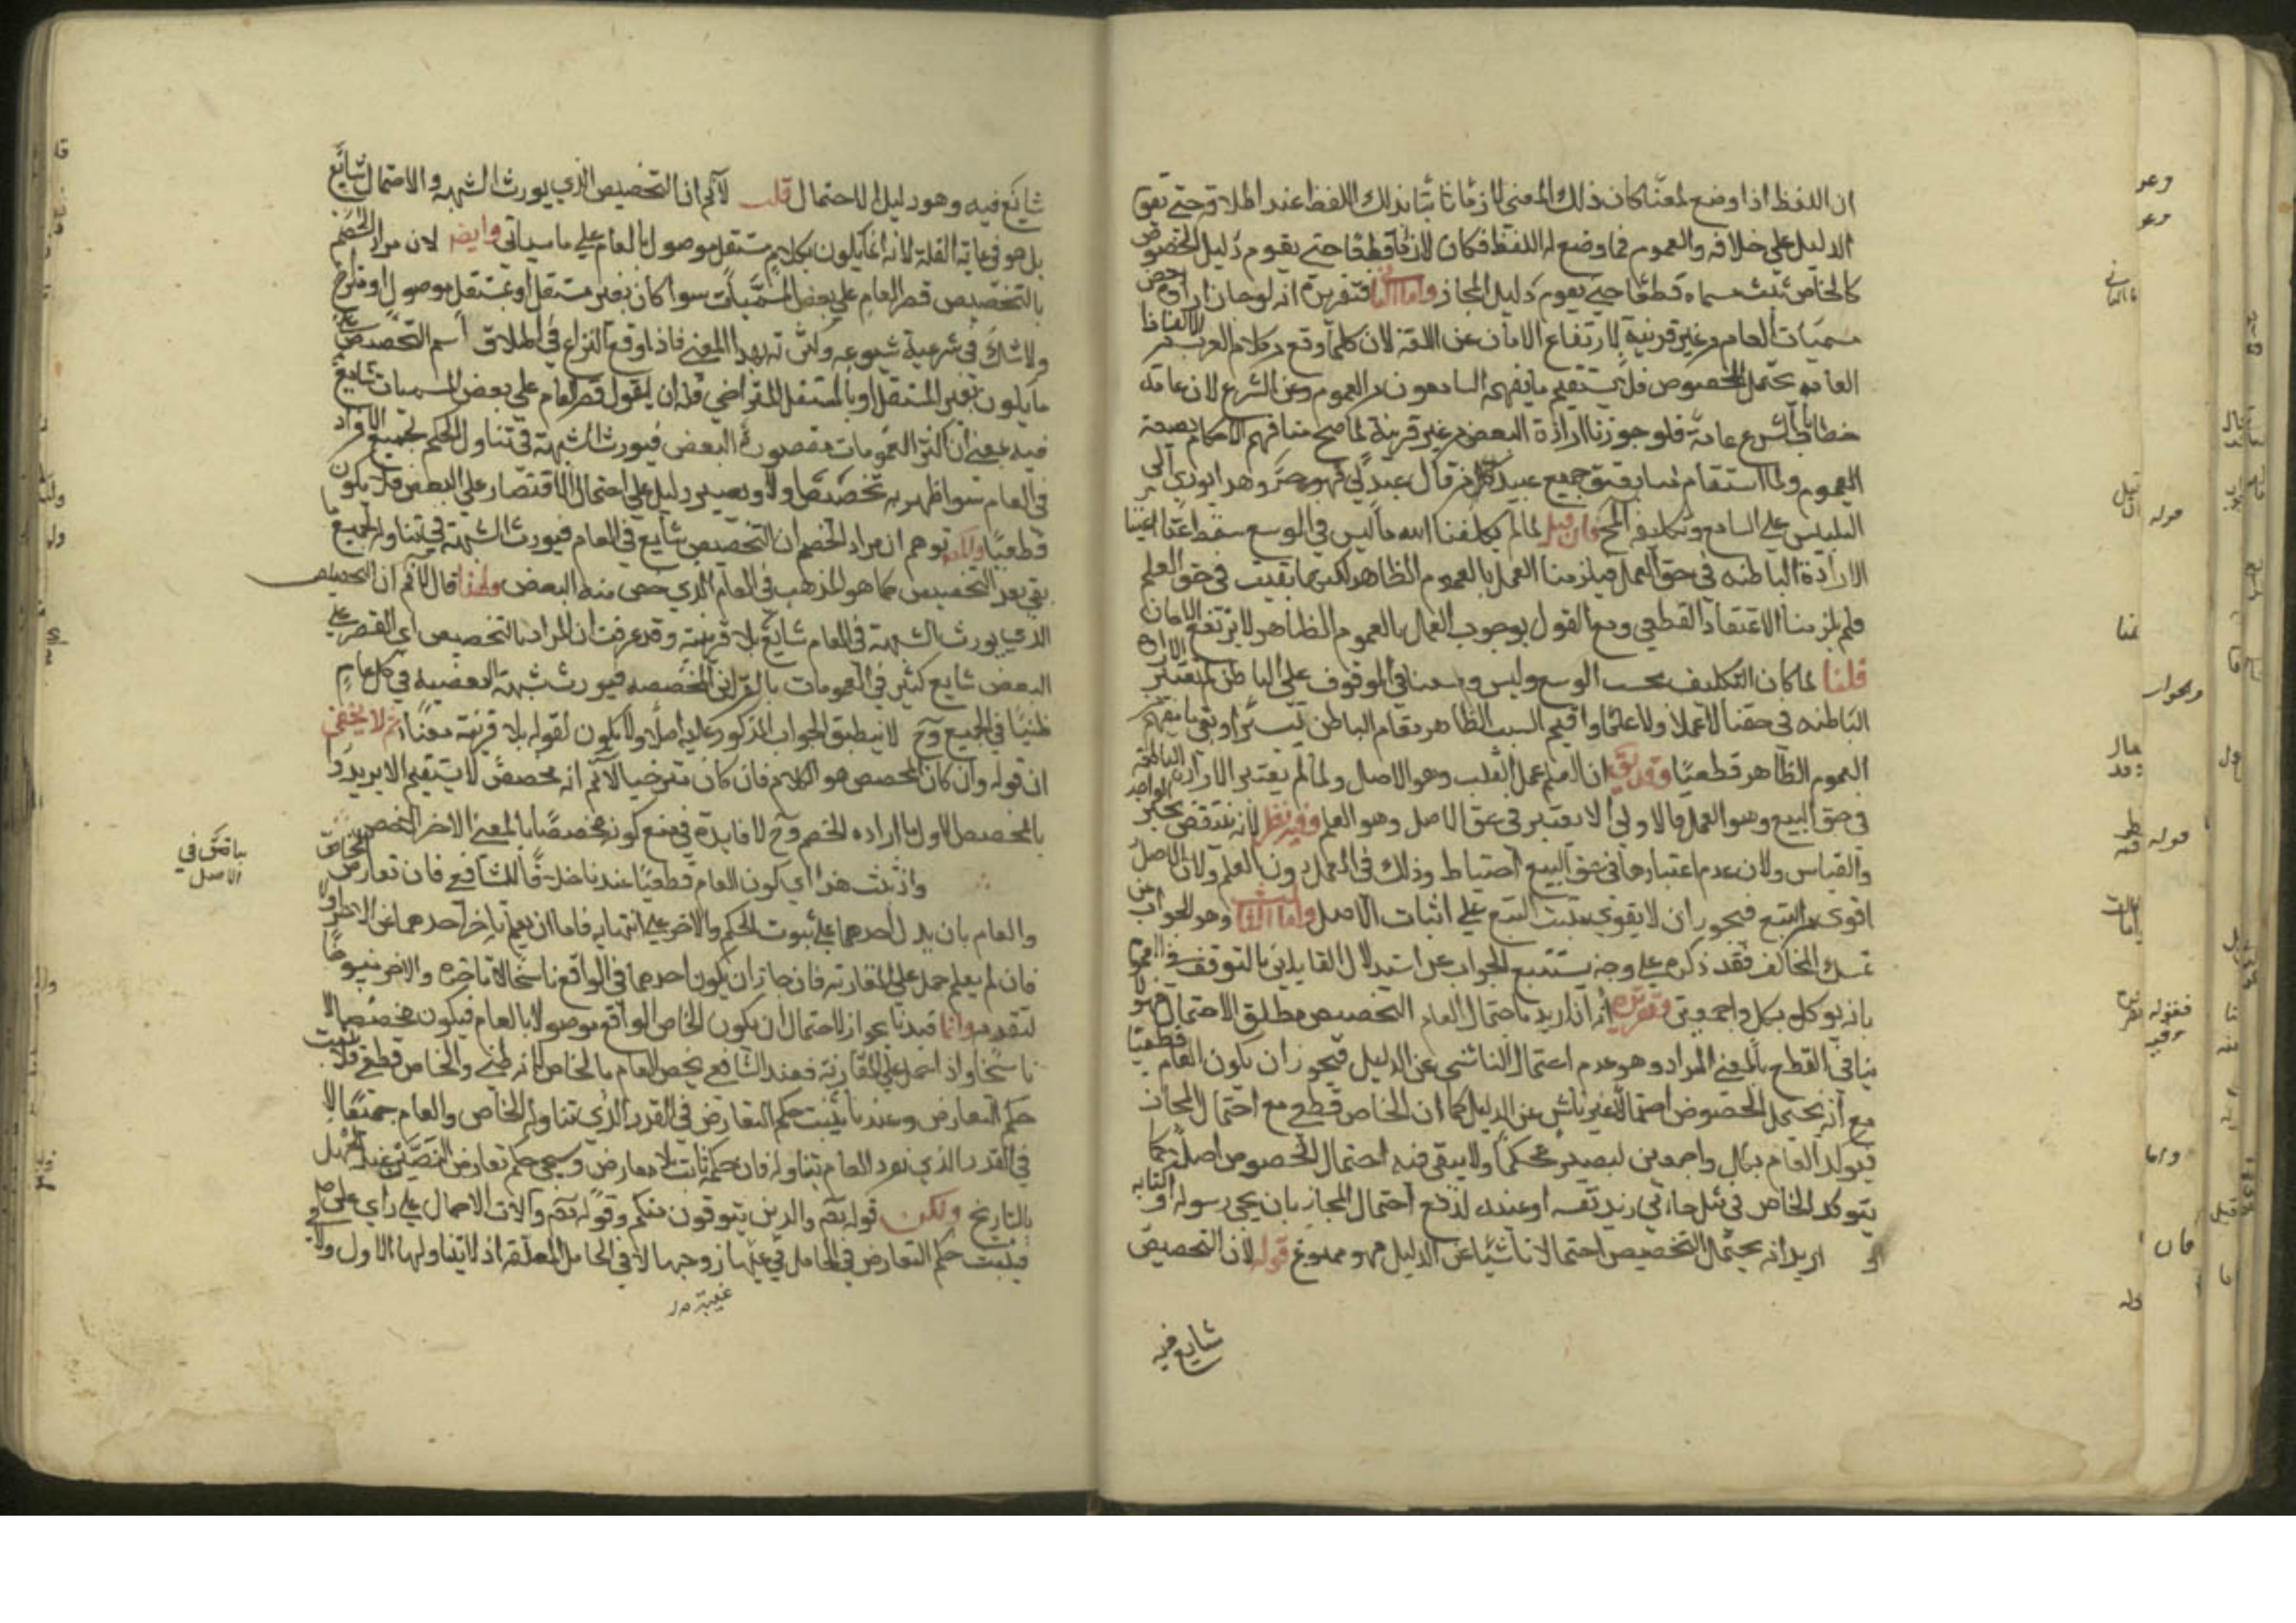 ان اللفظ اذا وضع لمعنا كان ذلك المعنى لازما ثابتا بذلك اللفظ عند اطلاقه حتى تقوم
الدليل على خلافه والعموم مما وضع له اللفظ فكان لازما قطعا حتى يقوم دليل الخصوص
كالخاص يثبت مسماه قطعا حتى يقوم دليل المجاز واما الثاني فتقريره انه لو جاز ارادة بعض
مسميات العام من غير قرينة لارتفاع الامان عن اللغة لان كلما وقع في كلام العرب من الالفاظ
العامه يحتمل الخصوص فلا يستقيم ما يفهم السامعون من العموم وعن الشرع لان عامة
خطابات الشرع عامة فلو جوزنا ارادة البعض من غير قرينة لما صح منا فهم الاحكام بصيغة
العموم ولما استقام منا بعتق جميع عبيد كل من قال عبد لي فهو حر وهذا يودي الى
التلبيس على السامع وتكليفه المحال فان قيل لما لم يكلفنا الله ما ليس في الوسع سقط اعتبار
الارادة الباطنه في حق العمل فيلزمنا العمل بالعموم الظاهر لكنها بقيت في حق العلم
فلم يلزمنا الاعتقاد القطعي ومع القول بوجوب العمل بالعموم الظاهر لا يرتفع الامان
قلنا لما كان التكليف بحسب الوسع وليس وسعنا في الوقوف على الباطن لم تعتبر الارادة
الباطنه في حقنا لا عملا ولا علما واقيم السبب الظاهر مقام الباطن تيسيرا وبقي ما يفهم من
العموم الظاهر قطعيا وقد يق ان العلم عمل القلب وهو الاصل ولما لم يعتبر الارادة الباطنة
في حق التبع وهو العمل فالاولى ان لا يعتبر في حق الاصل وهو العلم وفيه نظر لانه ينتقض بخبر الواحد
والقياس ولان عدم اعتبارها في حق التبع احتياط وذلك في العمل دون العلم ولان الاصل
اقوى من التبع فيجوز ان لا يقوى مثبت التبع على اثبات الاصل واما الثالث وهو الجواب عن
تمسك المخالف فقد ذكره على وجه يستتبع الجواب عن استدلال القايلين بالتوقف في العموم
بانه يوكد بكل واجمعين وتقريره انه ان اريد باحتمال العام التخصيص مطلق الاحتمال فهو لا
ينافي القطع بالمعنى المراد وهو عدم احتمال الناشي عن الدليل فيجوز ان يكون العام قطعيا
مع انه يحتمل الخصوص احتمالا غير ناش عن الدليل كما ان الخاص قطعي مع احتمال المجاز
فيوكد العام بكل واجمعين ليصير محكما ولا يبقى فيه احتمال الخصوص اصلا كما
يتوكد الخاص في مثل جاءني زيد نفسه او عينه لدفع احتمال المجاز بان يجي رسوله او كتابه
اريد انه يحتمل التخصيص احتمالا ناشيا عن الدليل فهو ممنوع قوله لان التخصيص
شايع فيه
شائع فيه وهو دليل الاحتمال قلت لا نم ان التخصيص الذي يورث الشبهه والاحتمال شائع
بل هو في غاية القلة لانه انما يكون بكلام مستقل موصول بالعام على ما سياتي وايض لان مراد الخصم
بالتخصيص قصر العام على بعض المسميات سوا كان بغير مستقل او بمستقل موصول او متراخ
ولا شك في شرعية شيوعه وكثرته بهذا المعنى فاذا وقع النزاع في اطلاق اسم التخصيص على
ما يكون بغير المستقل او بالمستقل المتراخي فله ان يقول قصر العام على بعض المسميات شايع
فيه بمعنى ان اكثر العمومات مقصور على البعض فيورث الشبهة في تناول الحكم لجميع الافراد
في العام سوا ظهر به تخصيص اولا ويصير دليل على احتمال الاقتصار على البعض فلا يكون
قطعيا والمص توهم ان مراد الخصم ان التخصيص شايع في العام فيورث الشبهة في تناوله لجميع ما
بقي بعد التخصيص كما هو المذهب في العام الذي خص منه البعض ولهذا قال لا نم ان التخصيص
الذي يورث الشبهة في العام شايع بلا قرينة وقد عرفت ان المراد بالتخصيص اي القصر على
البعض شايع كثير في العمومات بالقراين المخصصه فيورث شبهة البعضيه في كل عام
ظنيا في الجميع وح لا ينطبق الجواب المذكور عليه اصلا ولا يكون لقوله بلا قرينة معنا ثم لا يخفى
ان قوله وان كان المخصص هو الكلام فان كان متراخيا لا نم انه مخصص لا يستقيم الا يريد
بالمخصص الاول ما اراده الخصم وح لا فايدة في منع كونه مخصصا بالمعنى الاخر الاخص
واذ ثبت هذا اي كون العام قطعيا عندنا خلافا للشافعي فان تعارض الخاص
والعام بان يدل احدهما على ثبوت الحكم والاخر على انتفايه فاما ان يعلم تاخر احدهما عن الاخر او لا
فان لم يعلم حمل على المقارنة فان جاز ان يكون احدهما في الواقع ناسخا لتاخره والاخر منسوخا
لتقدمه وانما قيدنا بجواز لاحتمال ان يكون الخاص الواقع موصولا بالعام فيكون مخصصا لا
ناسخا واذا حمل على المقارنة فعند الشافعي يخص العام بالخاص لانه ظني والخاص قطعي فلا يثبت
حكم التعارض وعندنا يثبت حكم التعارض في القدر الذي تناوله الخاص والعام جميعا لا
في القدر الذي تفرد العام بتناوله فان حكمه ثابت بلا معارض وسيجي حكم تعارض النصين عند الجهل
بالتاريخ ولكن قوله تعم والذين يتوفون منكم وقوله تعم واولات الاحمال على راي على رض
فيثبت حكم التعارض في الحامل المتوفي عنها زوجها لا في الحامل المطلقة اذ لا يتناولها الاول ولا في